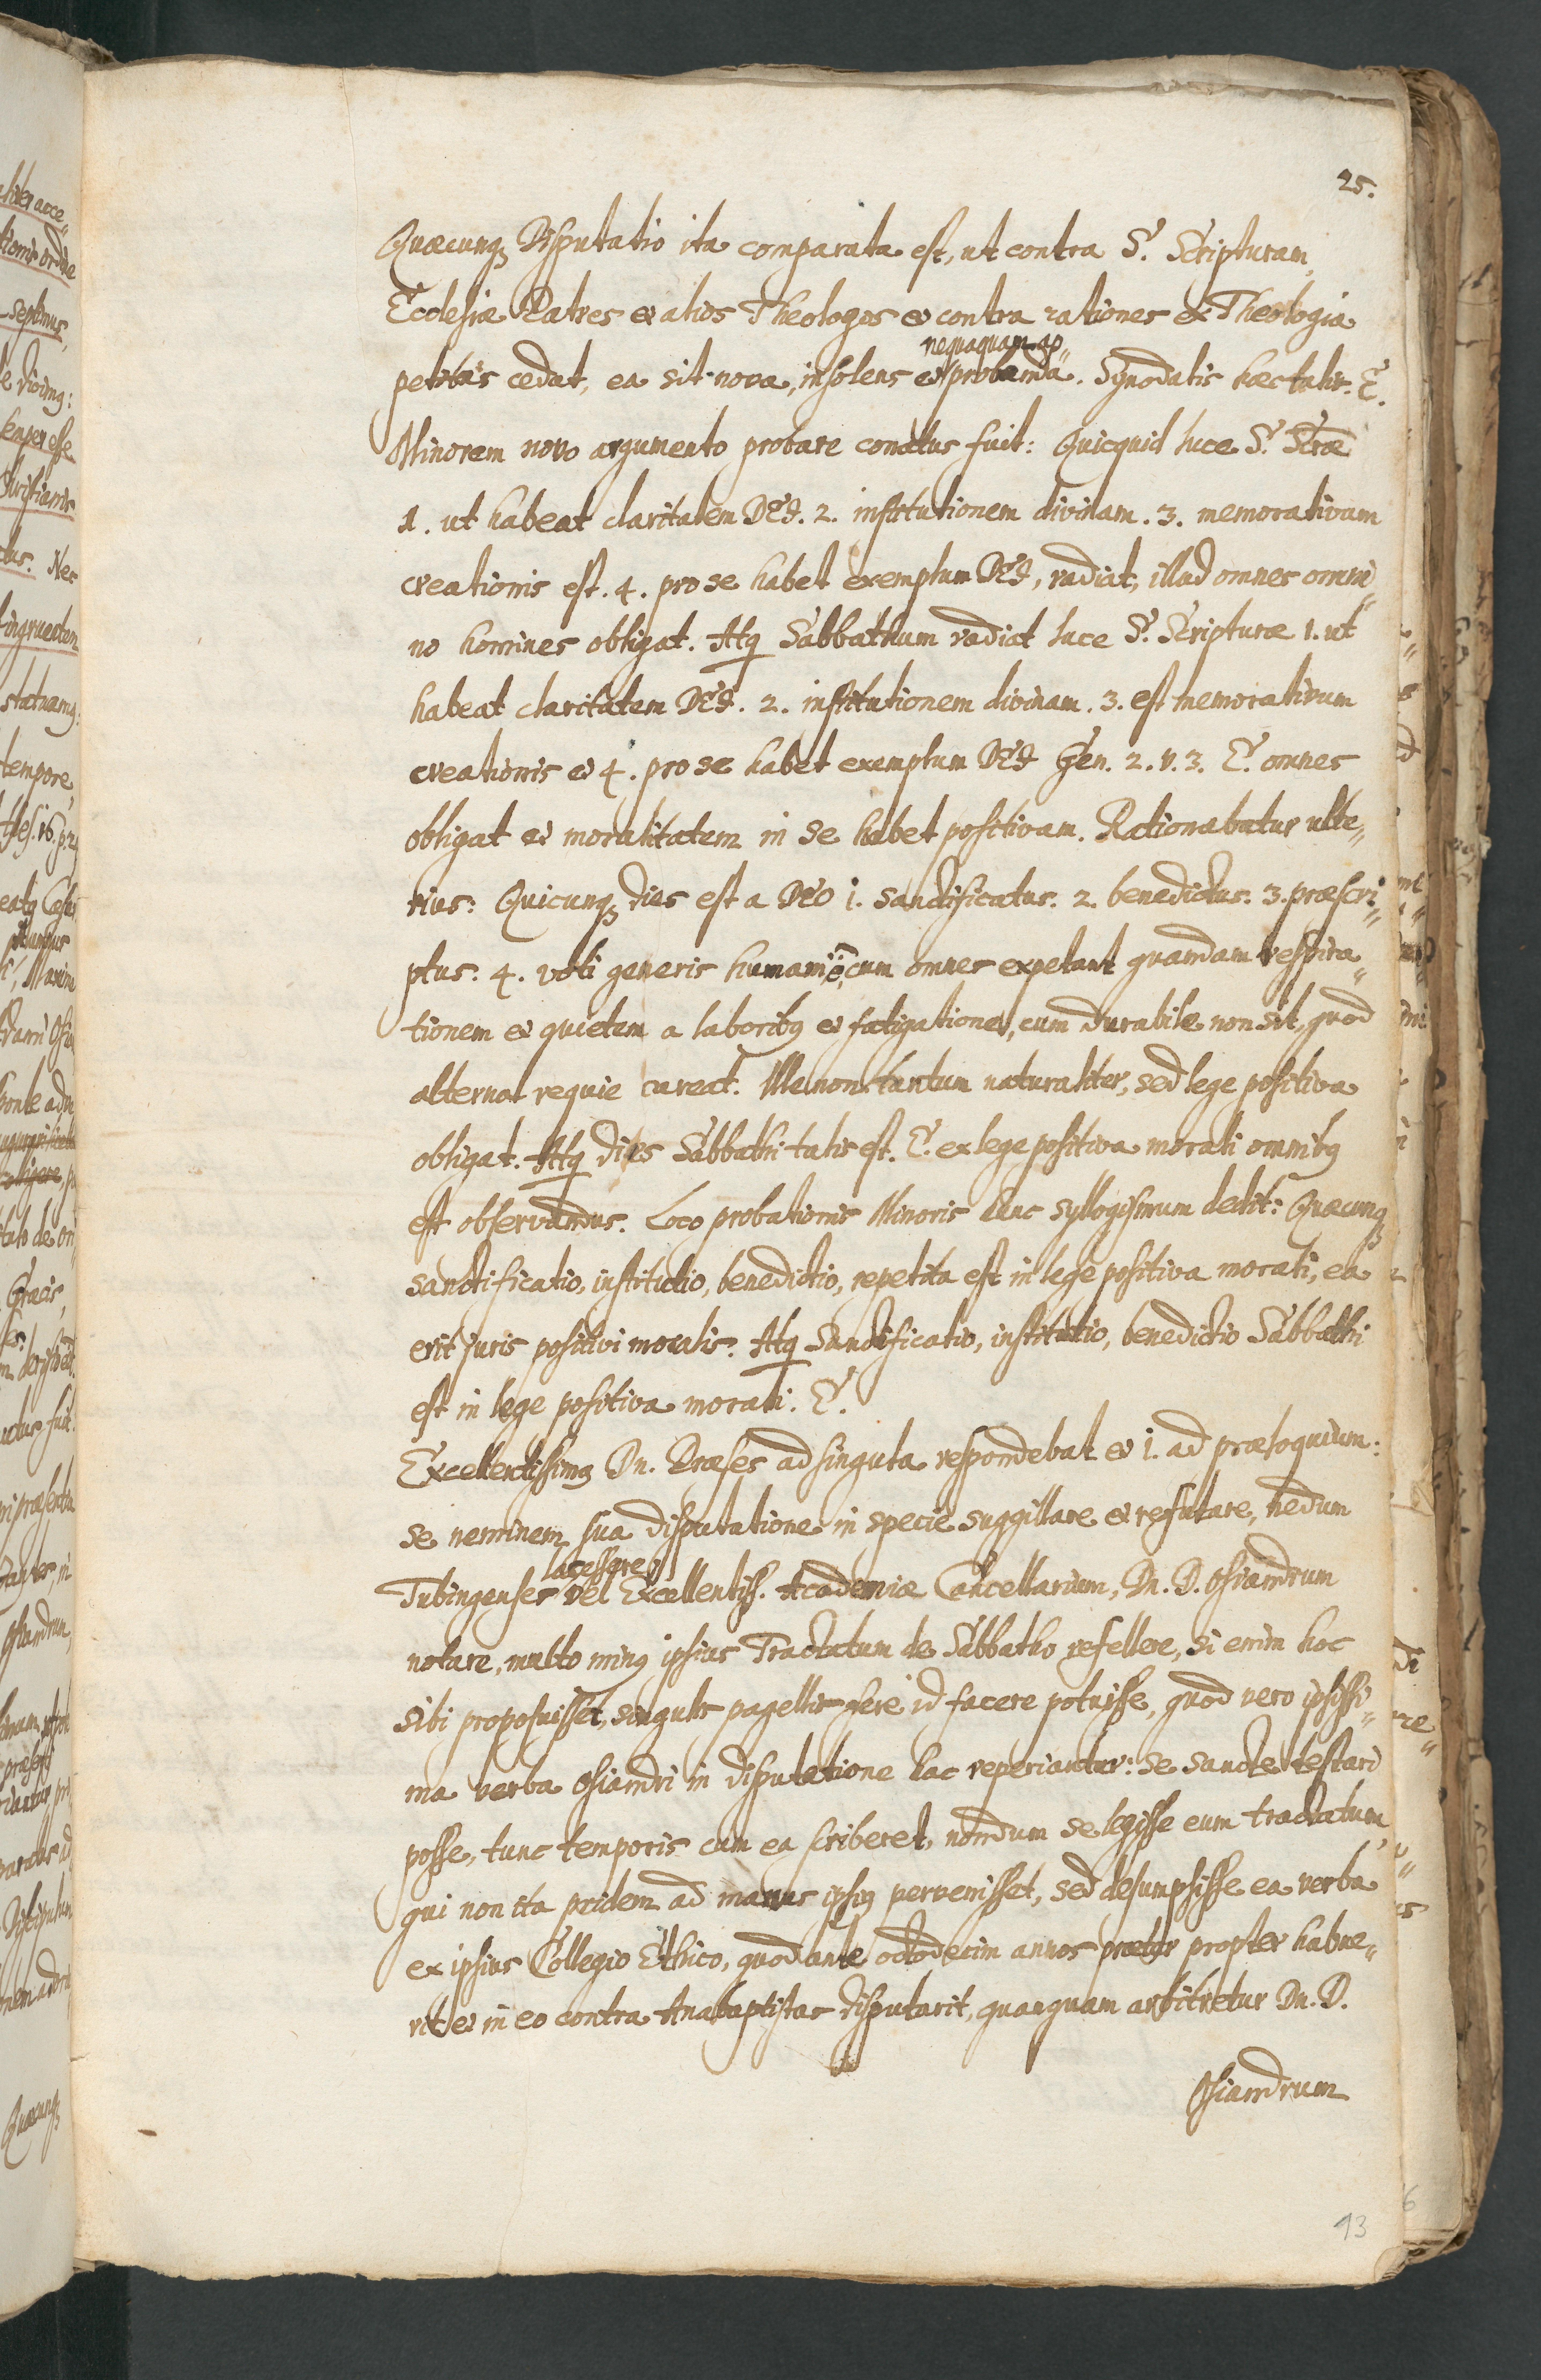 25.
Quæcunqȝ Disputatio ita comparata est, ut contra S. Scripturam,
Ecclesiæ Patres et alios Theologos et contra rationes ex Theologia
nequaquam ap„
petitas cedat, ea sit nova, insolens et probanda. Synodalis hæc talis. E.
Minorem novo argumento probare conatus fuit: Quicquid luce S. Scræ
1. ut habeat claritatem DEJ. 2. institutionem divinam. 3. memorativam
creationis est. 4. pro se habet exemplum DEJ, radiat, illud omnes omni„
no homines obligat. Atq Sabbathum radiat luce S. Scripturæ 1. ut
habeat claritatem DEJ. 2. institutionem divinam. 3. est memorativum
creationis et 4. pro se habet exemplum DEJ Gen. 2. v. 3. E. omnes
obligat et moralitatem in se habet positivam. Rationabatur ulte„
rius: Quicunqȝ dies est a DEO 1. sanctificatus. 2. benedictus. 3. præscri„
ptus. 4. voti generis humani ē, cum omnes expetant quandam respira„
tionem et quietem a laboribꝰ et fatigatione, cum durabile non sit, quod
alterna requie careat. Ille non tantum naturaliter, sed lege positiva
obligat. Atq dies Sabbathi talis est. E. ex lege positiva morali omnibꝰ
est observandus. Loco probationis Minoris hunc syllogismum dedit: Quæcunqȝ
sanctificatio, institutio, benedictio, repetita est in lege positiva morali, ea
erit juris positivi moralis. Atq Sanctificatio, institutio, benedictio Sabbathi
est in lege positiva morali. E.
Excellentissimꝰ Dn. Præses ad singula respondebat et 1. ad præloquium:
se neminem sua disputatione in specie suggillare et refutare, nedum
lacessere
Tubingenses vel Excellentiss. Academiæ Cancellarium, Dn. D. Osiandrum
notare, multo minꝰ ipsius Tractatum de Sabbatho refellere, si enim hoc
sibi proposuisset, singulis pagellis fere id facere potuisse, quod vero ipsissi„
ma verba Osiandri in disputatione hac reperiantur: se sancte testari
posse, tunc temporis cum ea scriberet, nondum se legisse eum tractatum
qui non ita pridem ad manus ipsiꝰ pervenisset, sed desumpsisse ea verba
ex ipsius Collegio Ethico, quod ante octodecim annos præter propter habue„
rit et in eo contra Anabaptistas disputarit, quanquam arbitretur Dn. D.
Osiandrum
13